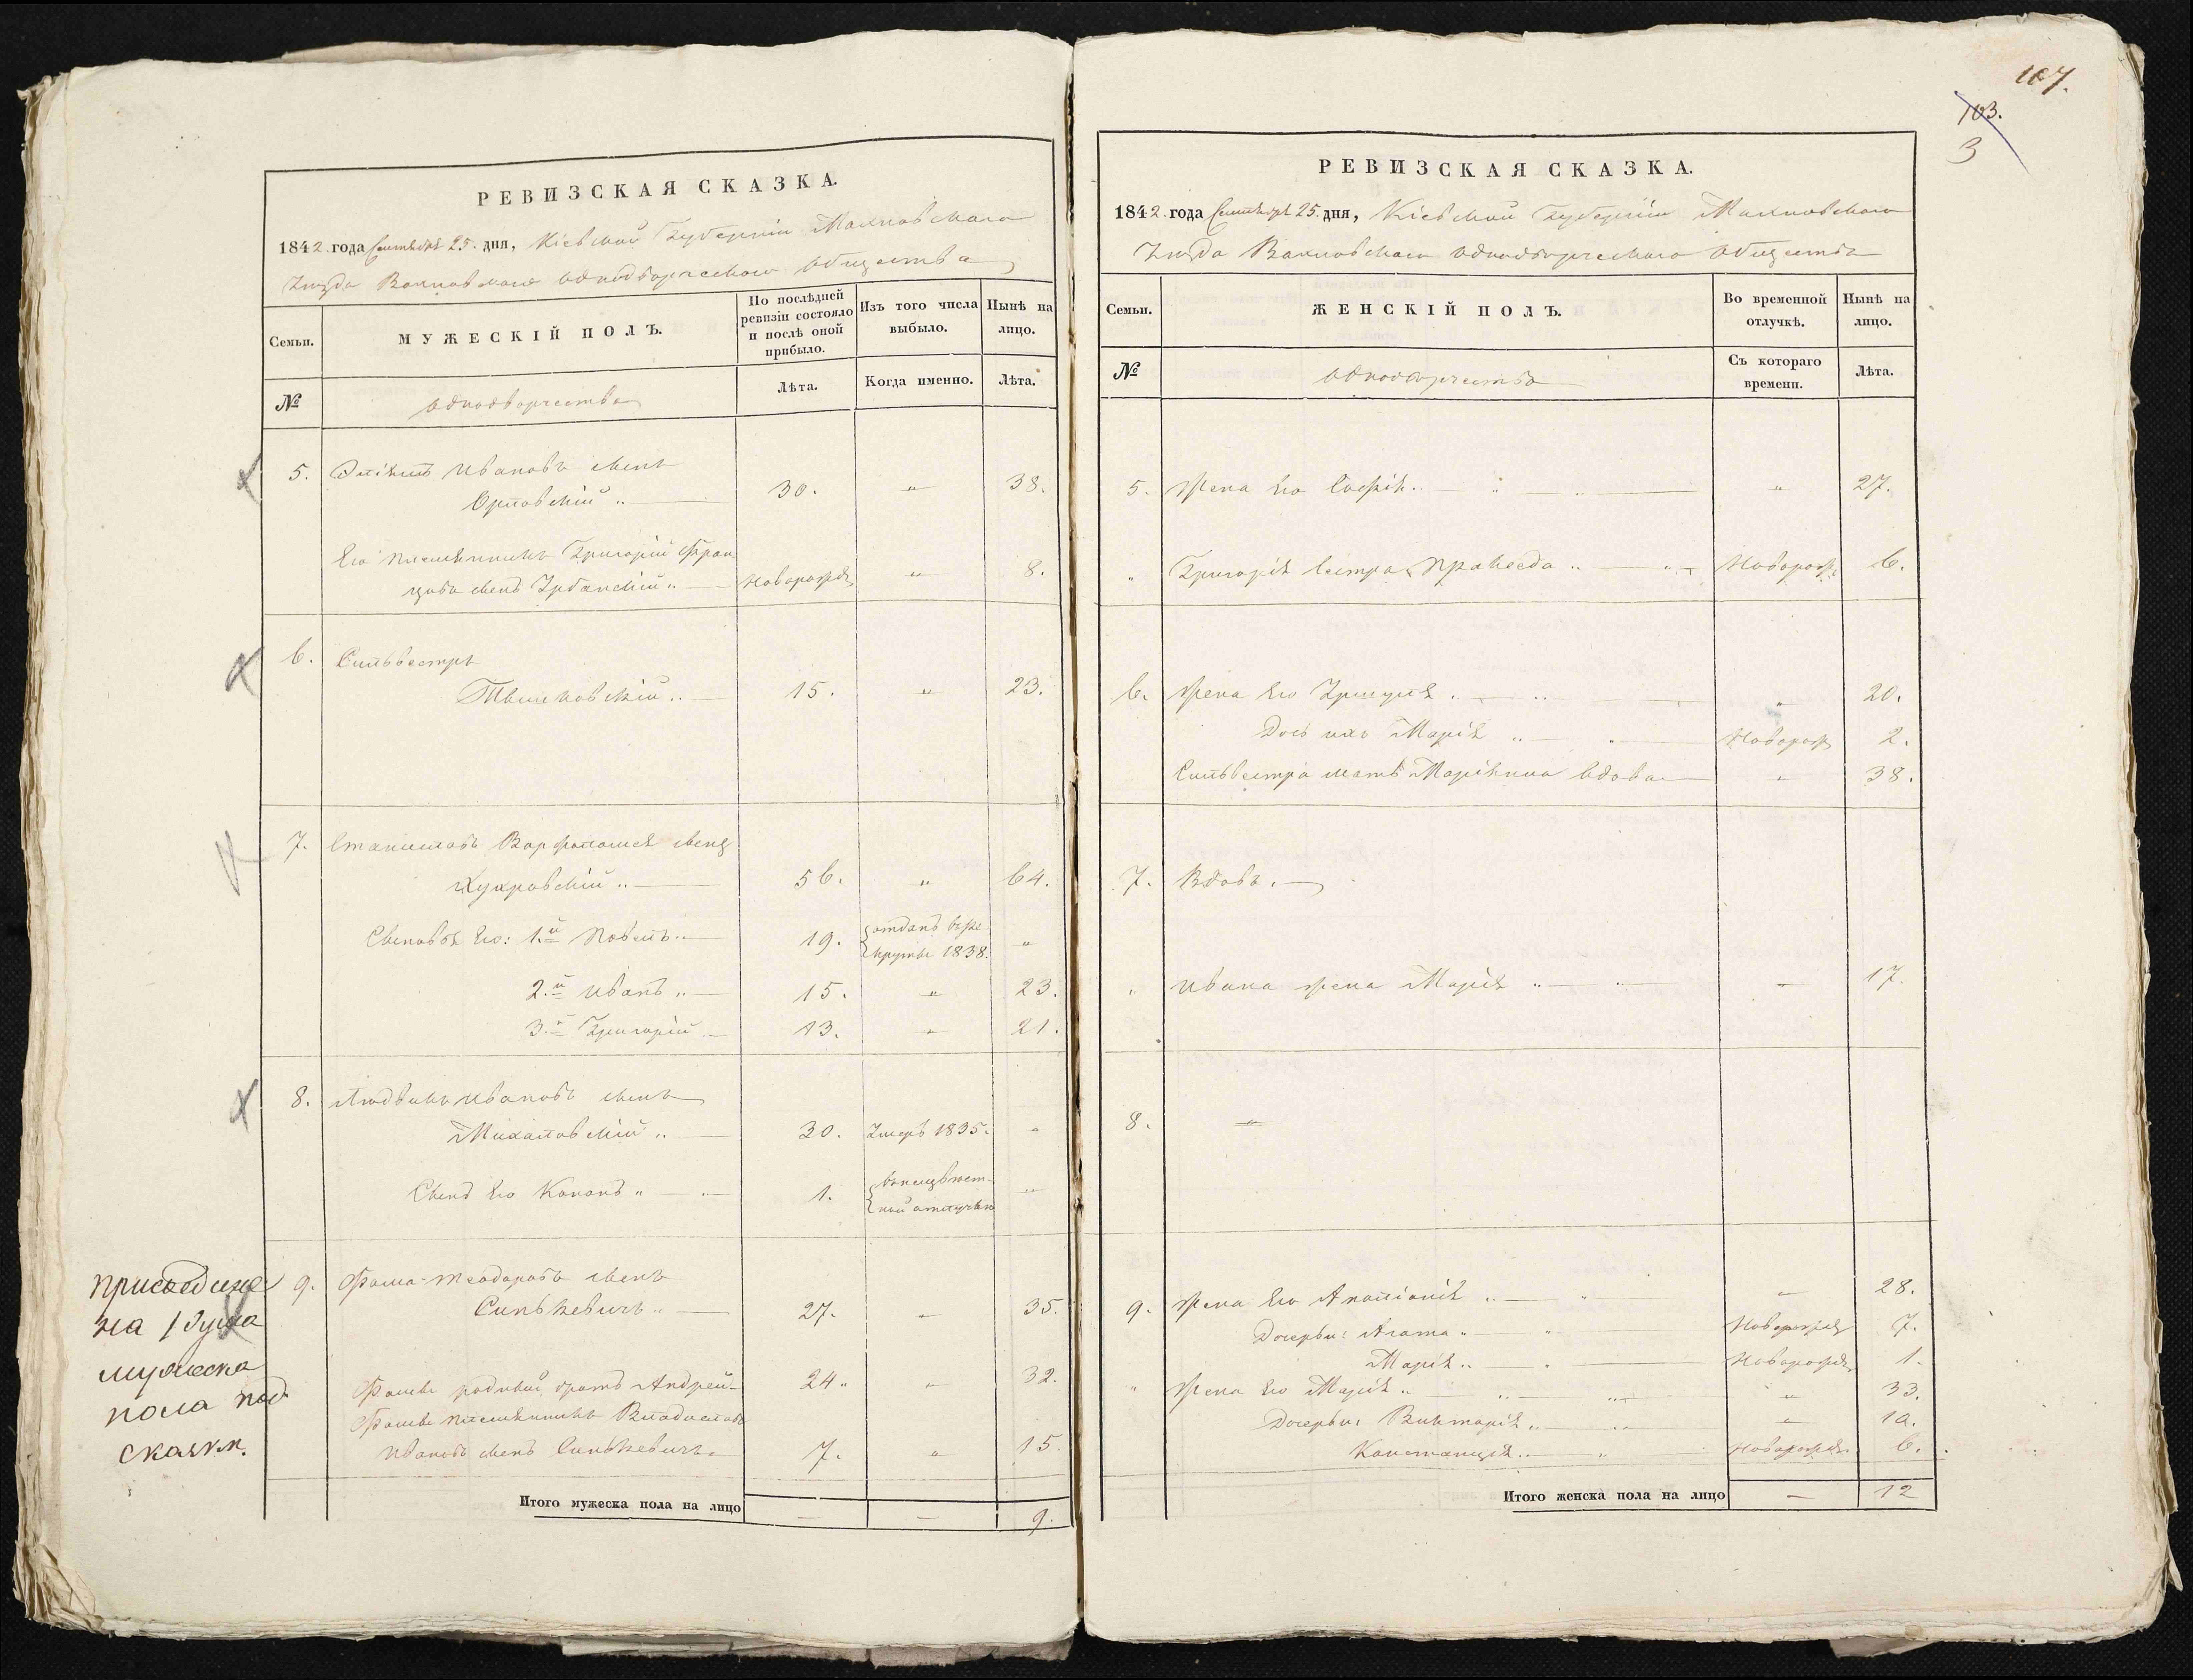 РЕВИЗСКАЯ СКАЗКА.
1842. года Сентября 25. дня, Кіевской Губерніи Махновскаго
Уезда Вахновскаго однодворческаго общества
Семьи.
МУЖЕСКІЙ ПОЛЪ.
По послѣдней ревизіи состояло и послѣ оной прибыло.
Изъ того числа выбыло.
Нынѣ на лицо.
№
однодворчества
Лѣта.
Когда именно.
Лѣта.
5. Ивановъ сынъ
30. „ 38.
Его племянникъ Григорій Фран
цовъ сынъ Урбанскій „ Новорожд 8.
6. Сильвестръ
15. „ 23.
7. Станиславъ Варфоломея сынъ
56. „ 64.
Сыновья его: 1.й Павелъ „ 19. отданъ в ре
круты 1838. „
2.й Иванъ „ 15. „ 23.
3.й Григорій 13. „ 21.
8. Людвикъ Ивановъ сынъ
Михаловскій „ 30. Умеръ 1835. „
Сынъ его „ 1. в неизвѣст-
ной отлучкѣ „
присоедине
на 1 душа
мужеска
пола под
сказкъ.
9. Фома Теодоровъ сынъ
Синькевичъ „ 27. „ 35.
Фомы родный братъ Андрей 24. „ 32.
Фомы племянникъ Владиславъ
Ивановъ сынъ Синькевичъ 7. „ 15.
Итого мужеска пола на лицо — — 9.
107.
103.
3
РЕВИЗСКАЯ СКАЗКА.
1842. года Сентября 25. дня, Кіевской Губерніи Махновскаго
Уезда Вахновскаго однодворческаго общества
Семьи.
ЖЕНСКІЙ ПОЛЪ.
Во временной отлучкѣ.
Нынѣ на лицо.
№
однодворчества
Съ котораго времени.
Лѣта.
5. Жена его Софія. „ 27.
„ Григорія сестра „ Новорож. 6.
6. Жена его „ 20.
Дочь ихъ Марія „ Новорож 2.
Сильвестра мать Маріянна вдова „ 38.
7. Вдовъ.
„ Ивана жена Марія „ 17.
8. „
9. Жена его Аполіонія „ 28.
Дочери: Агата „ Новорожд 7.
Марія „ Новорожд. 1.
„ Жена его Марія „ 33.
Дочери: Викторія „ 10.
Констанція „ Новорожд. 6.
Итого женска пола на лицо — 12